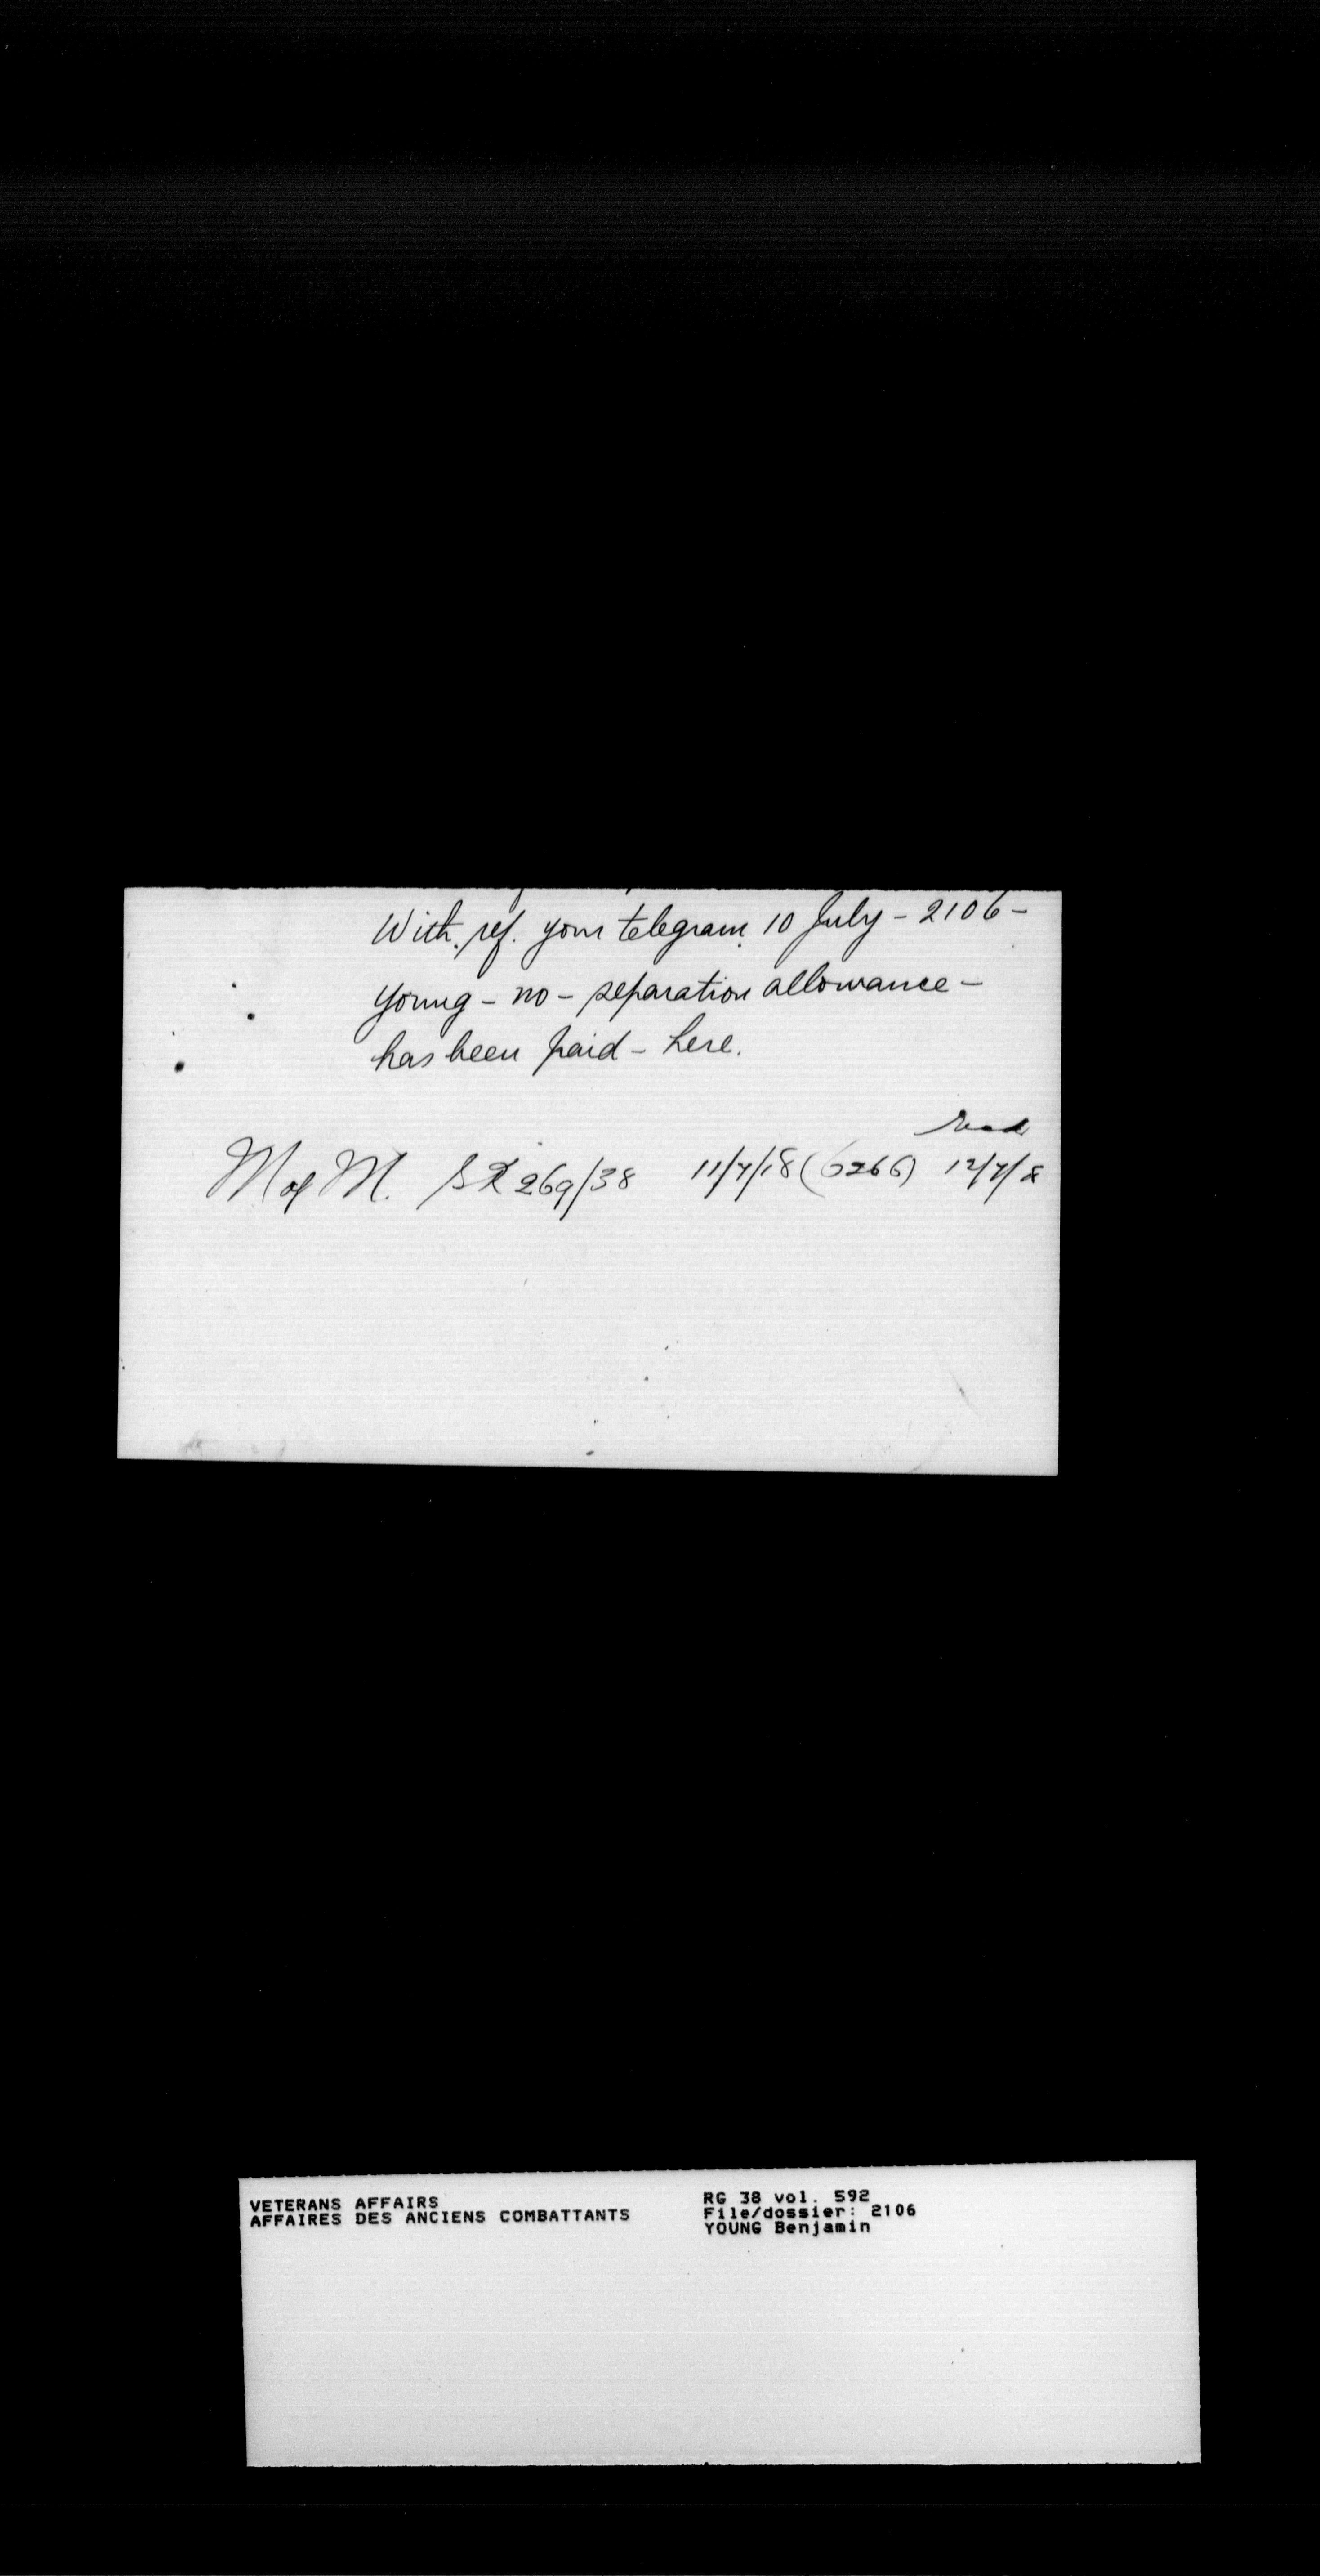 With. ref. your telegram 10 July - 2106 -
Young - no - separation allowance -
has been paid - here.
Recd
M of M. SR 269/38 11/7/18 (6266) 12/7/18
VETERANS AFFAIRS RG 38 vol. 592
AFFAIRES DES ANCIENS COMBATTANTS File/dossier: 2106
YOUNG Benjamin